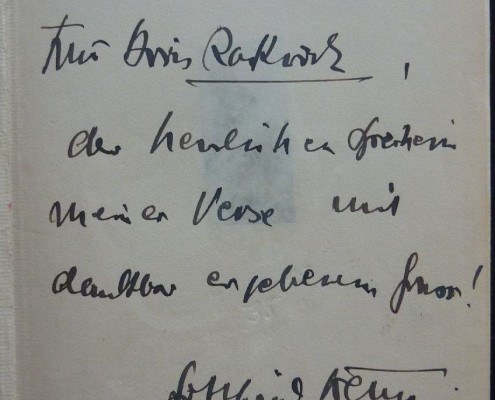 Frau Doris Rathwick,
der herrlichen Sprecherin
meiner Verse mit
dankbar ergebenem Gruss!
Gottfried Benn